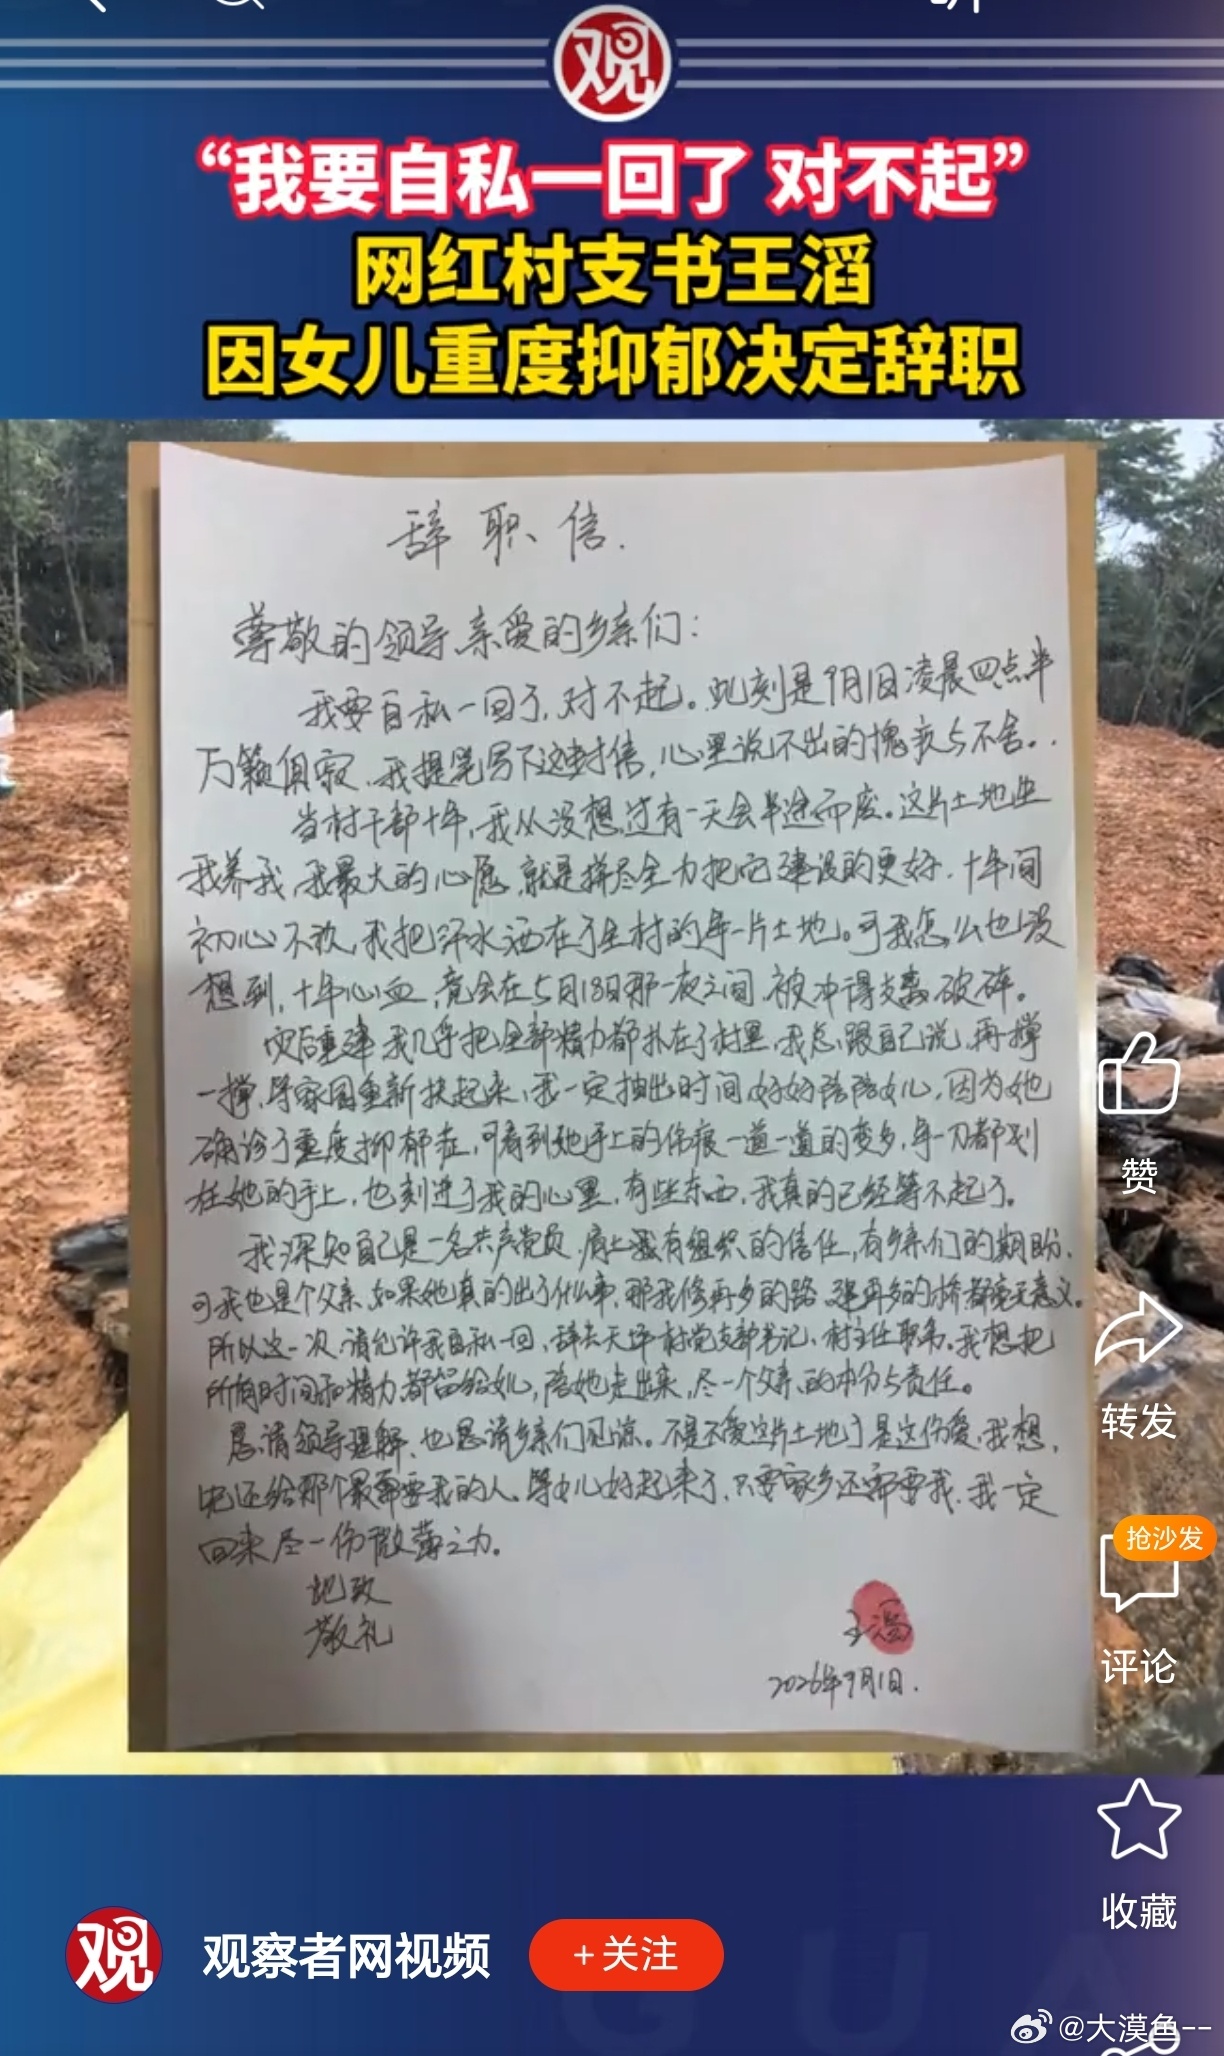 观
“我要自私一回了 对不起”
网红村支书王滔
因女儿重度抑郁决定辞职
辞职信.
尊敬的领导、亲爱的乡亲们：
我要自私一回了，对不起。此刻是9月1日凌晨四点半
万籁俱寂、我提笔写下这封信，心里说不出的愧疚与不舍..
当村干部十年，我从没想过有一天会半途而废。这片土地生
我养我，我最大的心愿，就是拼尽全力把它建设的更好，十年间
初心不改，我把汗水洒在了全村的每一片土地。可我怎么也没
想到，十年心血，竟会在5月18日那一夜之间，被冲得支离破碎。
灾后重建，我几乎把全部精力都扎在了村里，我总跟自己说，再撑
一撑，等家园重新扶起来，我一定抽出时间好好陪陪女儿，因为她
确诊了重度抑郁症，可看到她手上的伤痕一道一道的变多，每一刀都划
在她的手上，也刻进了我的心里，有些东西，我真的已经等不起了。
我深知自己是一名共产党员，肩上有组织的信任，有乡亲们的期盼，
可我也是个父亲，如果她真的出了什么事，那我修再多的路，建再多的桥都毫无意义。
所以这一次，请允许我自私一回，辞去天坪村党支部书记、村主任职务。我想把
所有时间和精力都留给女儿，陪她走出来，尽一个父亲的本分与责任。
恳请领导理解，也恳请乡亲们见谅。不是不爱这片土地了是这份爱，我想，
先还给那个最需要我的人。等女儿好起来了，只要家乡还需要我，我一定
回来尽一份微薄之力。
此致
敬礼
王滔
2026年9月1日.
赞
转发
抢沙发
评论
收藏
观
观察者网视频
+关注
@大漠鱼--